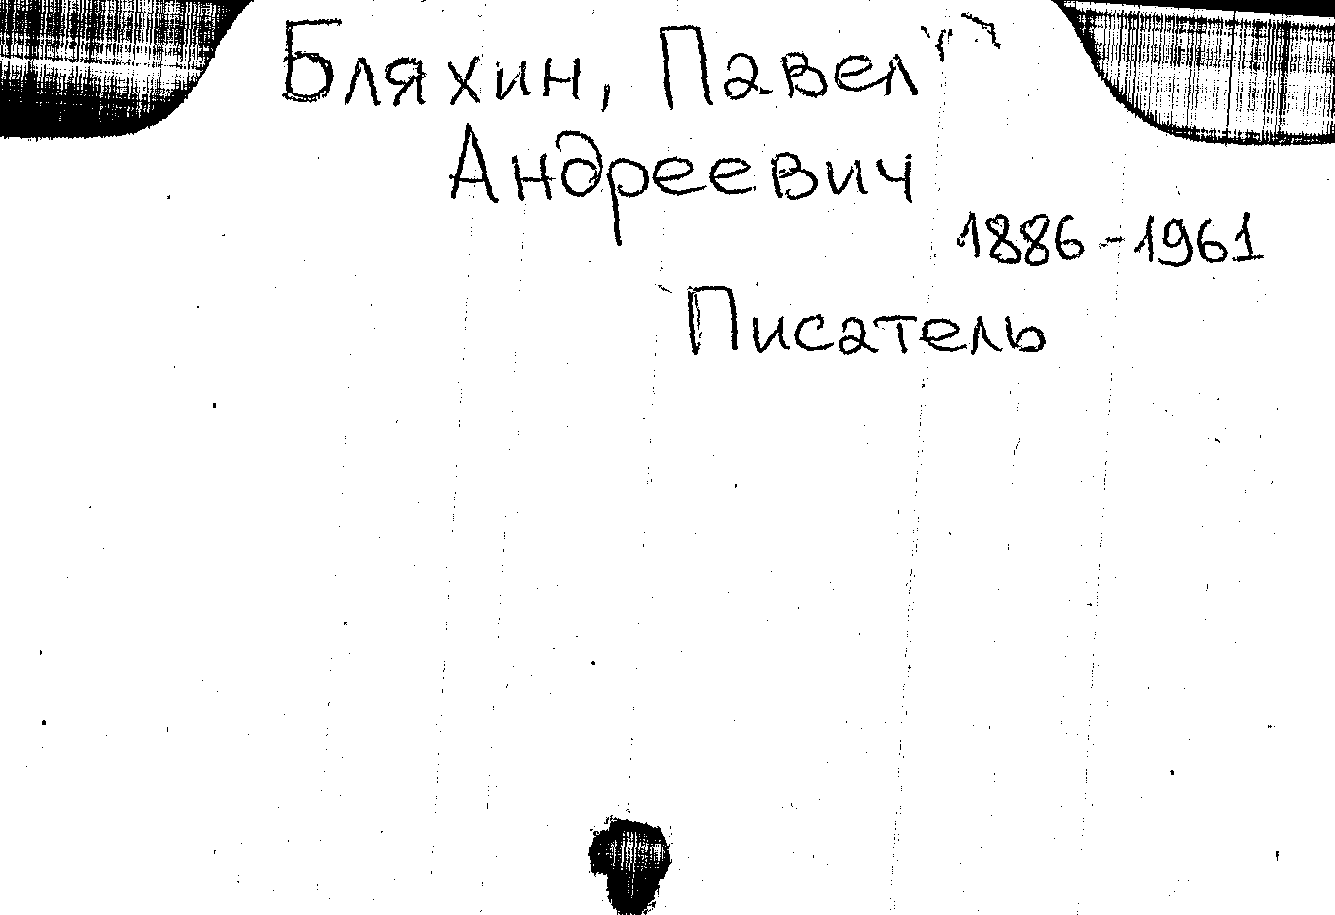 Бляхин, Павел
Андреевич
1886-1961
Писатель